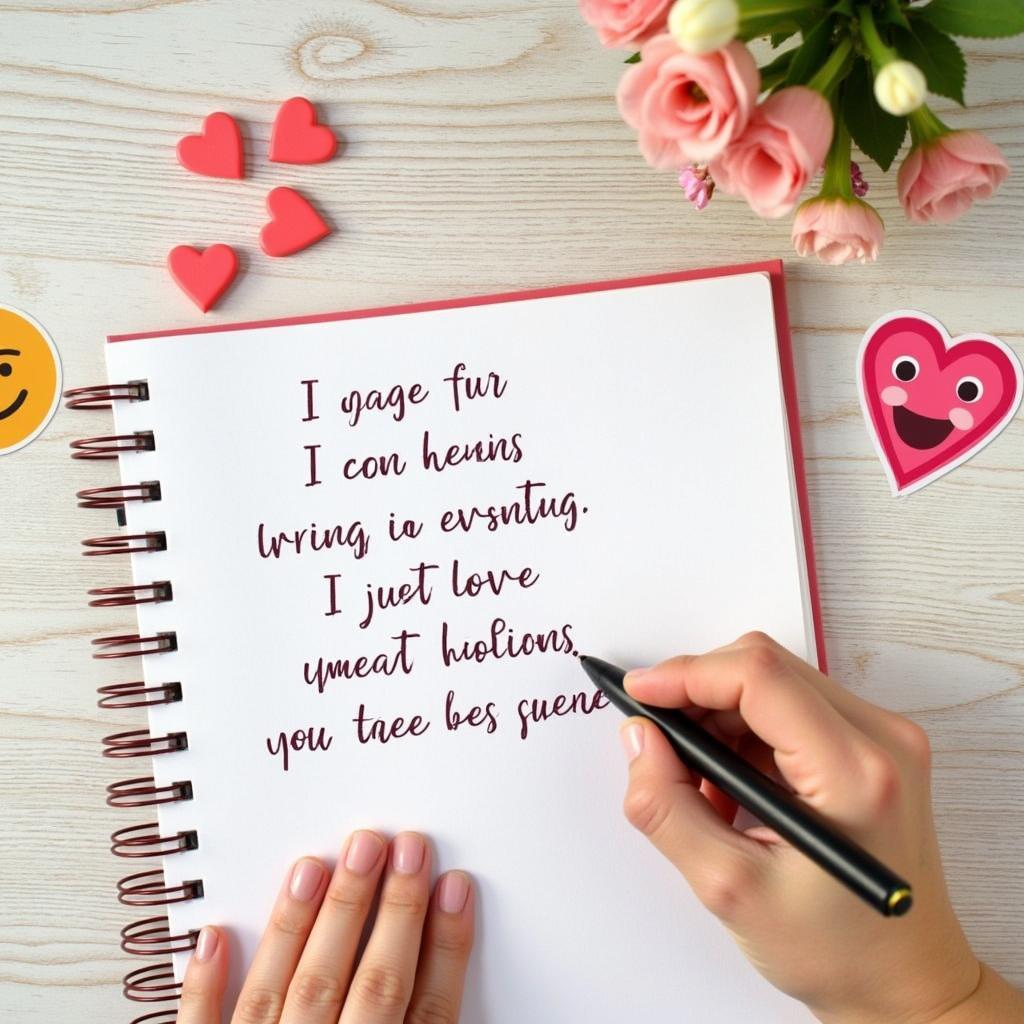 I gage fur
I con heuins
lvring ia evsntug.
I just love
ymeat huolions.
you taee bes guene